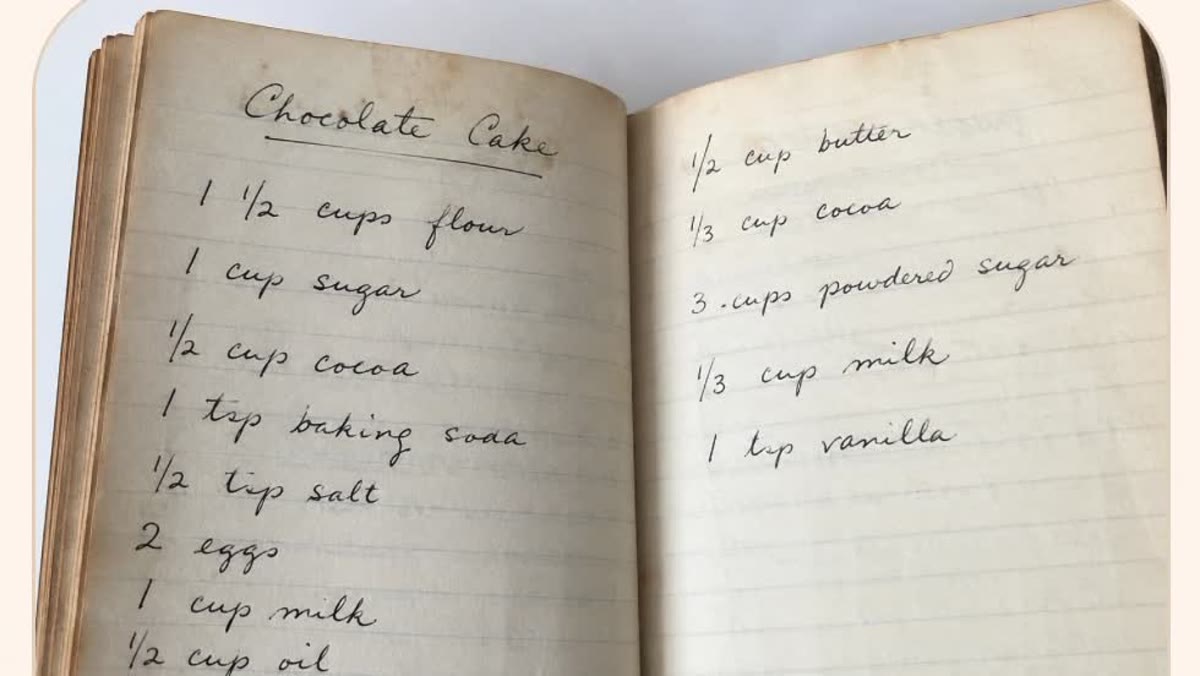 Chocolate Cake
1 1/2 cups flour
1 cup sugar
1/2 cup cocoa
1 tsp baking soda
1/2 tsp salt
2 eggs
1 cup milk
1/2 cup oil
1/2 cup butter
1/3 cup cocoa
3 cups powdered sugar
1/3 cup milk
1 tsp vanilla